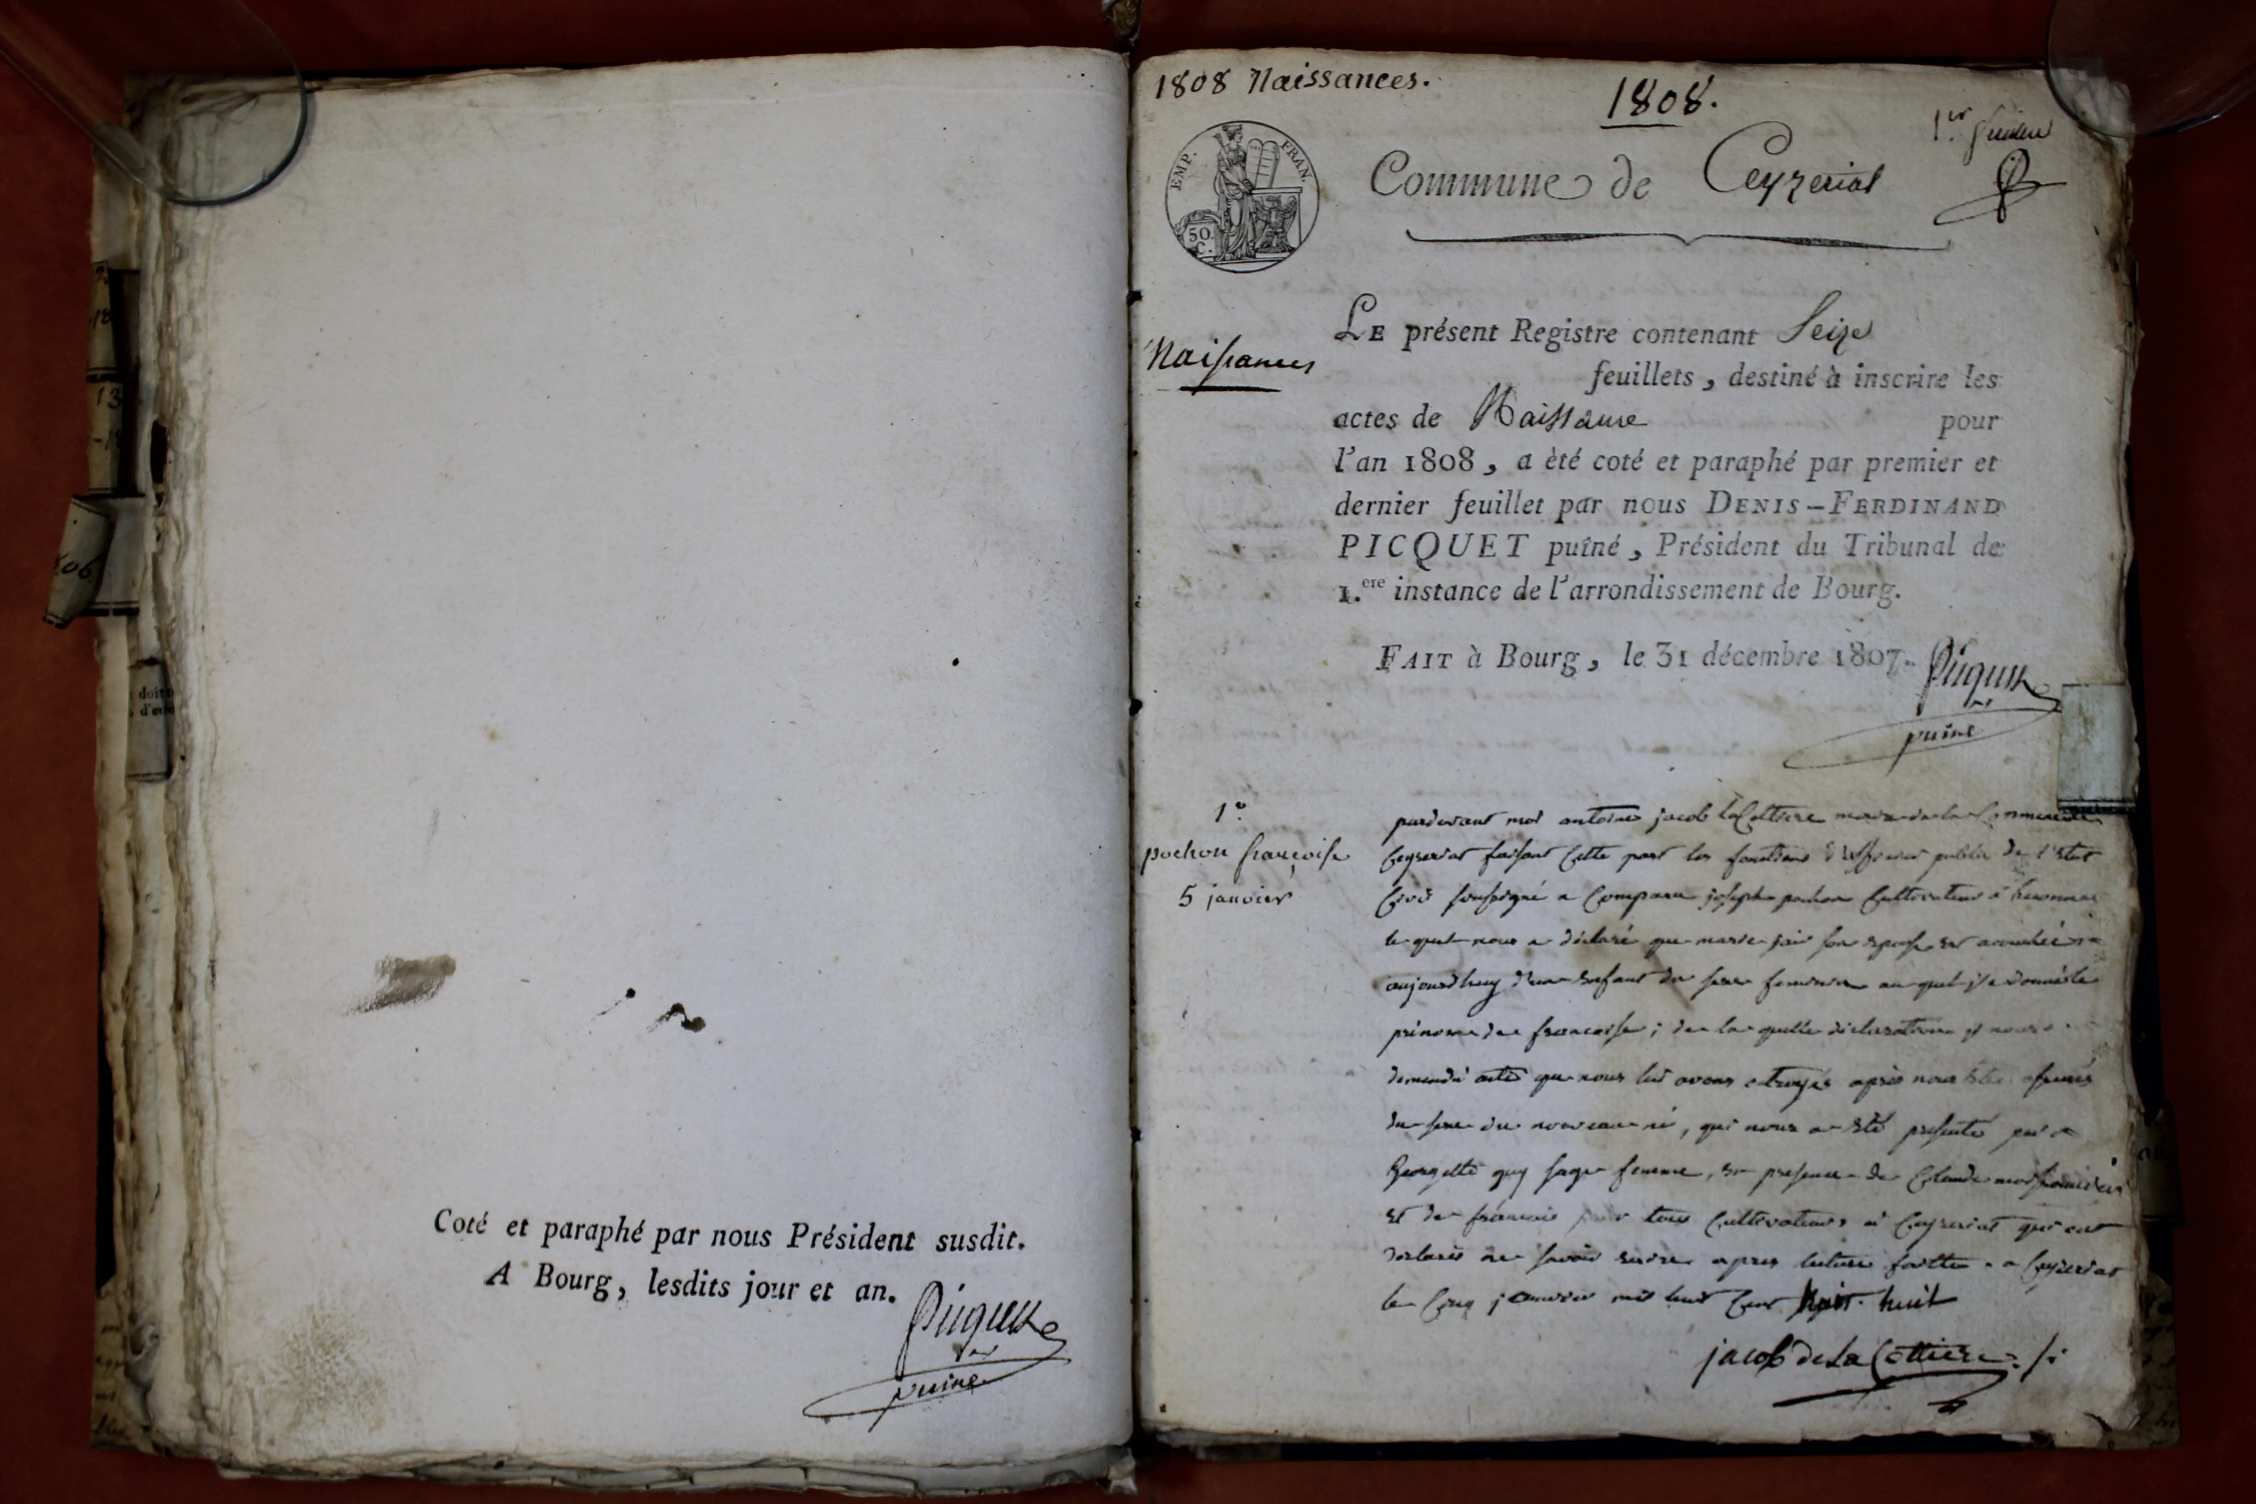 Coté et paraphé par nous Président susdit.
A Bourg, lesdits jour et an.
Picquet
puiné
1808 Naissances.
1808.
1er feuillet
EMP. FRAN.
50 C.
Commune de Ceyzeriat
LE présent Registre contenant Seize
Naissances
feuillets, destiné à inscrire les
actes de Naissance pour
l'an 1808, a èté coté et paraphé par premier et
dernier feuillet par nous DENIS-FERDINAND
PICQUET puîné, Président du Tribunal de
1.ere instance de l'arrondissement de Bourg.
FAIT à Bourg, le 31 décembre 1807.
Picquet
puiné
1º
pochon françoise
5 janvier
pardevant moi antoine jacob la Cottiere maire de la Commune de
Ceyzeriat faisant cette part les fonctions d'officier public de l'etat
Civil soussigné a Comparu joseph pochon Cultivateur à
le quel nous a déclaré que marie son epouse est accouchée
aujourdhuy d'un enfant du sexe feminin au quel il a donné le
prenom de francoise; de la quelle déclaration il nous a
demandé acte que nous lui avons octroyés après nous être assurés
du sexe du nouveau né, qui nous a été presenté par
Georgette guy sage femme, en presence de Claude
et de francois tous Cultivateurs à Ceyzeriat qui ont
declarés ne savoir signer apres lecture faitte a Ceyzeriat
le Cinq janvier mil huit Cent huit
jacob de La Cottiere